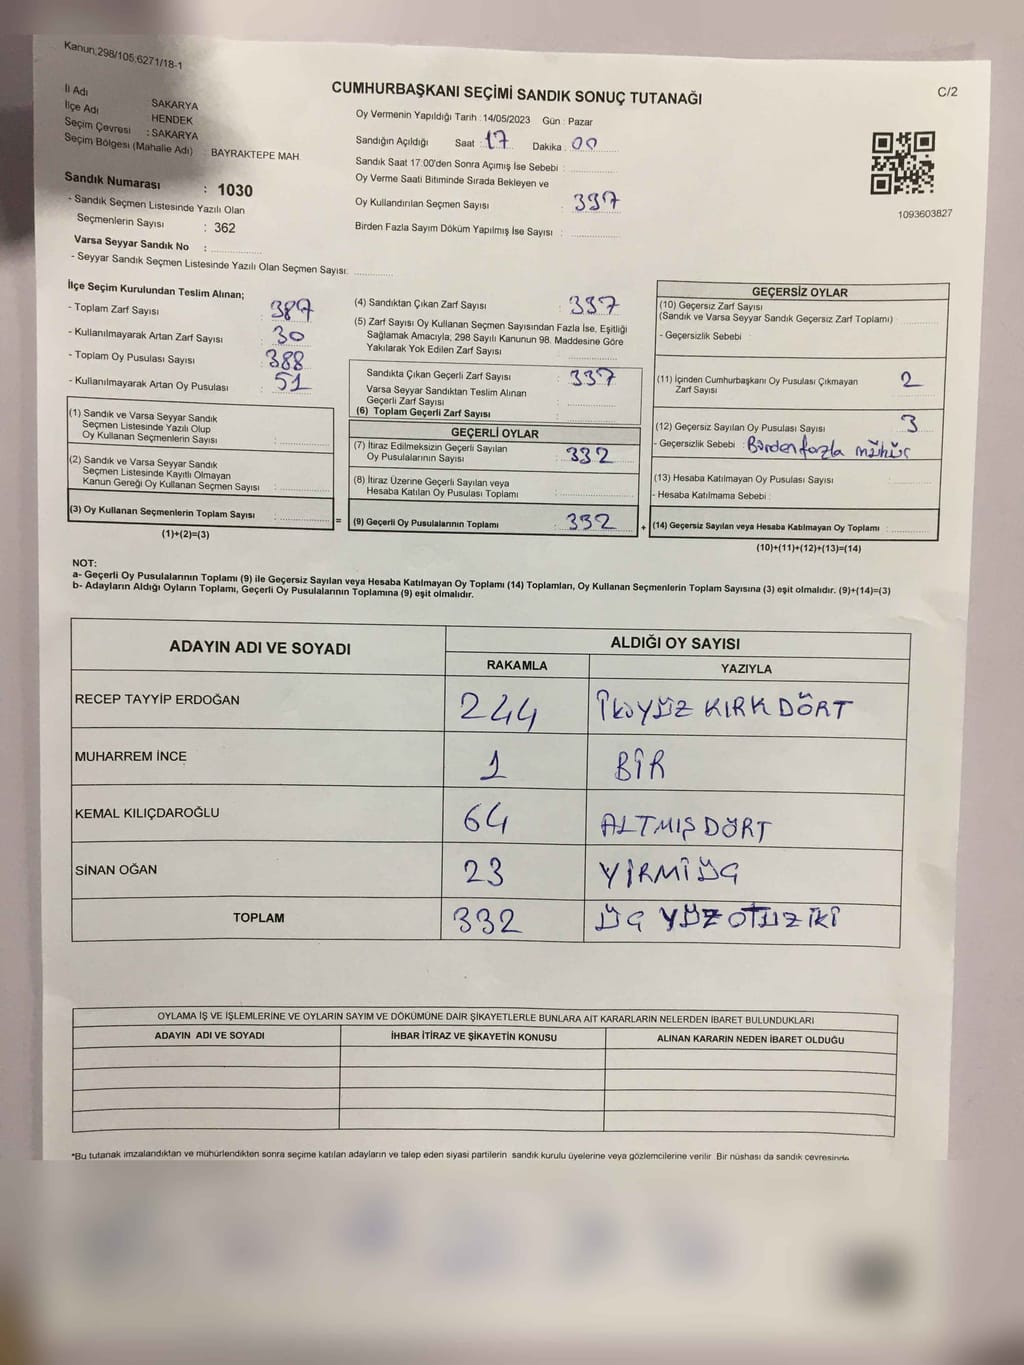 Kanun,298/105,6271/18-1
CUMHURBAŞKANI SEÇİMİ SANDIK SONUÇ TUTANAĞI
C/2
İl Adı SAKARYA
İlçe Adı HENDEK
Seçim Çevresi : SAKARYA
Seçim Bölgesi (Mahalle Adı) : BAYRAKTEPE MAH.
Sandık Numarası : 1030
- Sandık Seçmen Listesinde Yazılı Olan
Seçmenlerin Sayısı : 362
Varsa Seyyar Sandık No :
- Seyyar Sandık Seçmen Listesinde Yazılı Olan Seçmen Sayısı:
Oy Vermenin Yapıldığı Tarih : 14/05/2023 Gün : Pazar
Sandığın Açıldığı Saat : 17 Dakika : 00
Sandık Saat 17:00'den Sonra Açımış İse Sebebi :
Oy Verme Saati Bitiminde Sırada Bekleyen ve
Oy Kullandırılan Seçmen Sayısı : 337
Birden Fazla Sayım Döküm Yapılmış İse Sayısı :
1093603827
İlçe Seçim Kurulundan Teslim Alınan;
- Toplam Zarf Sayısı : 387
- Kullanılmayarak Artan Zarf Sayısı : 30
- Toplam Oy Pusulası Sayısı : 388
- Kullanılmayarak Artan Oy Pusulası : 51
(1) Sandık ve Varsa Seyyar Sandık
Seçmen Listesinde Yazılı Olup
Oy Kullanan Seçmenlerin Sayısı :
(2) Sandık ve Varsa Seyyar Sandık
Seçmen Listesinde Kayıtlı Olmayan
Kanun Gereği Oy Kullanan Seçmen Sayısı :
(3) Oy Kullanan Seçmenlerin Toplam Sayısı :
(1)+(2)=(3)
=
(4) Sandıktan Çıkan Zarf Sayısı : 337
(5) Zarf Sayısı Oy Kullanan Seçmen Sayısından Fazla İse, Eşitliği
Sağlamak Amacıyla, 298 Sayılı Kanunun 98. Maddesine Göre
Yakılarak Yok Edilen Zarf Sayısı
Sandıkta Çıkan Geçerli Zarf Sayısı : 337
Varsa Seyyar Sandıktan Teslim Alınan
Geçerli Zarf Sayısı :
(6) Toplam Geçerli Zarf Sayısı :
GEÇERLİ OYLAR
(7) İtiraz Edilmeksizin Geçerli Sayılan
Oy Pusulalarının Sayısı : 332
(8) İtiraz Üzerine Geçerli Sayılan veya
Hesaba Katılan Oy Pusulası Toplamı :
(9) Geçerli Oy Pusulalarının Toplamı : 332
+
GEÇERSİZ OYLAR
(10) Geçersiz Zarf Sayısı
(Sandık ve Varsa Seyyar Sandık Geçersiz Zarf Toplamı) :
- Geçersizlik Sebebi :
(11) İçinden Cumhurbaşkanı Oy Pusulası Çıkmayan
Zarf Sayısı : 2
(12) Geçersiz Sayılan Oy Pusulası Sayısı : 3
- Geçersizlik Sebebi : Birden fazla mühür
(13) Hesaba Katılmayan Oy Pusulası Sayısı :
- Hesaba Katılmama Sebebi :
(14) Geçersiz Sayılan veya Hesaba Katılmayan Oy Toplamı :
(10)+(11)+(12)+(13)=(14)
NOT:
a- Geçerli Oy Pusulalarının Toplamı (9) ile Geçersiz Sayılan veya Hesaba Katılmayan Oy Toplamı (14) Toplamları, Oy Kullanan Seçmenlerin Toplam Sayısına (3) eşit olmalıdır. (9)+(14)=(3)
b- Adayların Aldığı Oyların Toplamı, Geçerli Oy Pusulalarının Toplamına (9) eşit olmalıdır.
ADAYIN ADI VE SOYADI ALDIĞI OY SAYISI
RAKAMLA YAZIYLA
RECEP TAYYİP ERDOĞAN 244 İKİYÜZ KIRK DÖRT
MUHARREM İNCE 1 BİR
KEMAL KILIÇDAROĞLU 64 ALTMIŞ DÖRT
SİNAN OĞAN 23 YİRMİ ÜÇ
TOPLAM 332 ÜÇ YÜZ OTUZ İKİ
OYLAMA İŞ VE İŞLEMLERİNE VE OYLARIN SAYIM VE DÖKÜMÜNE DAİR ŞİKAYETLERLE BUNLARA AİT KARARLARIN NELERDEN İBARET BULUNDUKLARI
ADAYIN ADI VE SOYADI İHBAR İTİRAZ VE ŞİKAYETİN KONUSU ALINAN KARARIN NEDEN İBARET OLDUĞU
*Bu tutanak imzalandıktan ve mühürlendikten sonra seçime katılan adayların ve talep eden siyasi partilerin sandık kurulu üyelerine veya gözlemcilerine verilir. Bir nüshası da sandık çevresinde